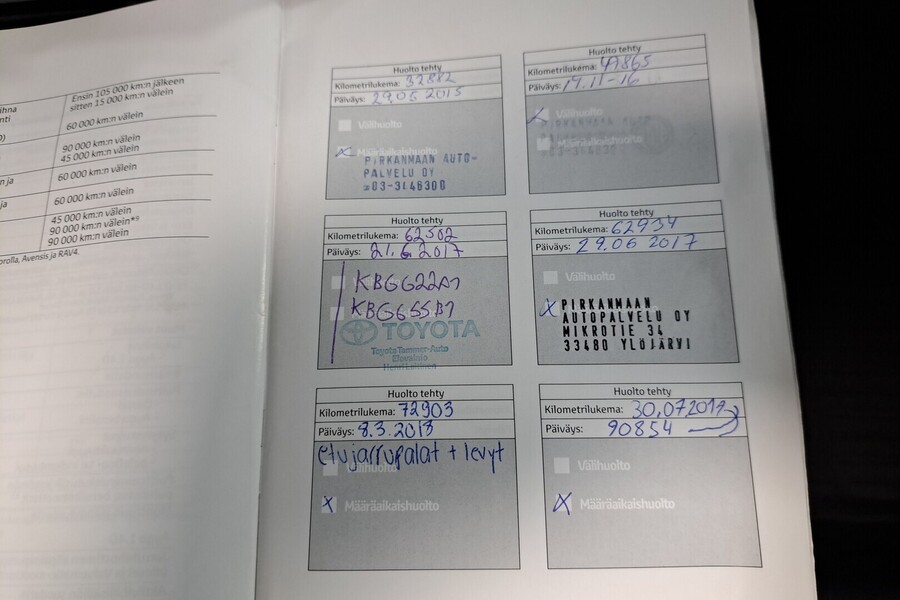 Ensin 105 000 km:n jälkeen
sitten 15 000 km:n välein
60 000 km:n välein
90 000 km:n välein
45 000 km:n välein
60 000 km:n välein
60 000 km:n välein
45 000 km:n välein
90 000 km:n välein*³
90 000 km:n välein
Avensis ja RAV4.
Huolto tehty
Kilometrilukema: 32882
Päiväys: 29.06 2015
Välihuolto
x Määräaikaishuolto
PIRKANMAAN AUTO-
PALVELU OY
Huolto tehty
Kilometrilukema:
Päiväys: 14.11-16
Välihuolto
Huolto tehty
Kilometrilukema: 62502
Päiväys: 21.6.2017
KBGG22A1
KBGG55B1
TOYOTA
Toyota Tammer-Auto
Huolto tehty
Kilometrilukema: 62934
Päiväys: 29.06 2017
Välihuolto
x PIRKANMAAN
AUTOPALVELU OY
MIKROTIE 34
33480 YLÖJÄRVI
Huolto tehty
Kilometrilukema: 72903
Päiväys: 8.3.2018
etujarrupalat + levyt
x Määräaikaishuolto
Huolto tehty
Kilometrilukema: 30,07 2019
Päiväys: 90854
Välihuolto
x Määräaikaishuolto